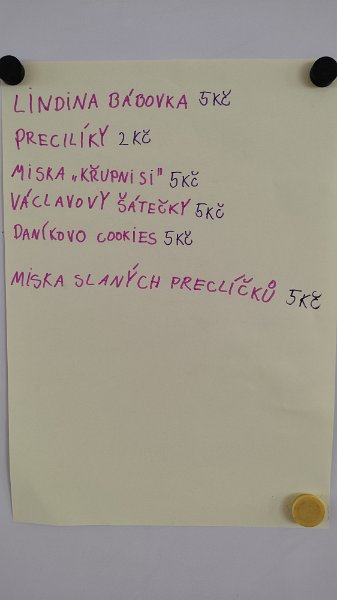 LINDINA BÁBOVKA 5KČ
PRECILÍKY 2KČ
MISKA „KŘUPNISI" 5KČ
VÁCLAVOVÝ ŠÁTEČKY 5KČ
DANÍKOVO COOKIES 5KČ
MISKA SLANÝCH PRECLÍČKŮ 5KČ